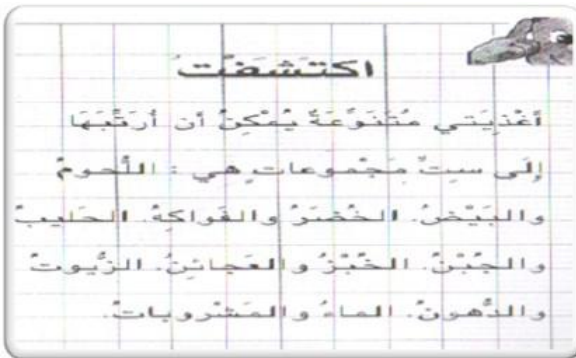 اكتَشَفْتُ
أغْذِيَتي مُتَنَوِّعَةٌ يُمْكِنُ أن أرَتِّبَهَا
إلَى سِتِّ مَجْموعاتٍ هِي : اللُّحومُ
والبَيْضُ. الخُضَرُ والفَواكِهُ. الحَليبُ
والجُبْنُ. الخُبْزُ والعَجائِنُ. الزُّيوتُ
والدُّهونُ. الماءُ والمَشْروباتُ.